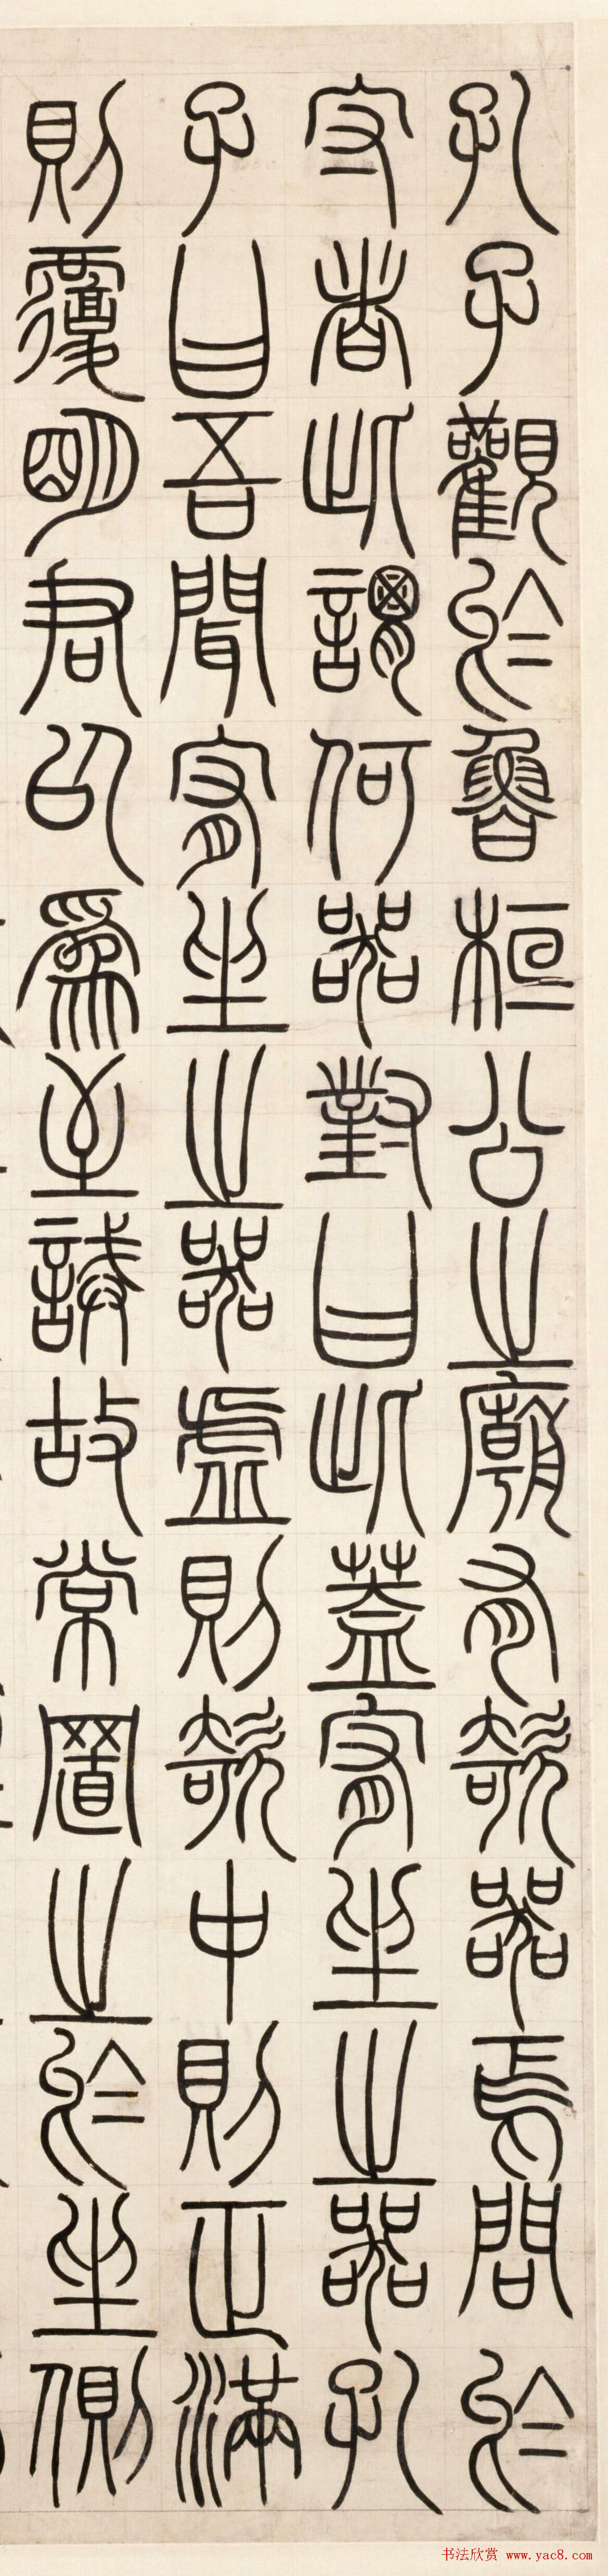 孔子觀於魯桓公之廟有欹器焉問於
守者此謂何器對曰此蓋宥坐之器孔
子曰吾聞宥坐之器虛則欹中則正滿
則覆明君以爲至誡故常置之於坐側
书法欣赏 www.yac8.com